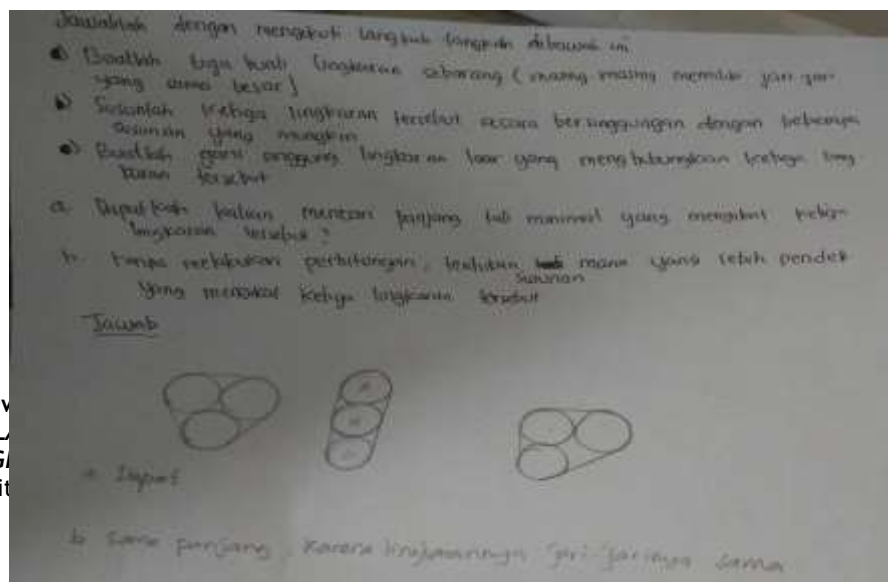 Jawablah dengan mengikuti langkah langkah dibawah ini
a) Buatlah tiga buah lingkaran sebarang (masing masing memiliki jari-jari
yang sama besar)
b) Susunlah ketiga lingkaran tersebut secara bersinggungan dengan beberapa
susunan yang mungkin
c) Buatlah garis singgung lingkaran luar yang menghubungkan ketiga ling
karan tersebut
a. Dapatkah kalian mencari panjang tali minimal yang mengikat ketiga
lingkaran tersebut?
b. tanpa melakukan perhitungan, tentukan mana yang lebih pendek
susunan
yang mengikat ketiga lingkaran tersebut
Jawab
a Dapat
b sama panjang, karena lingkarannya jari jarinya sama